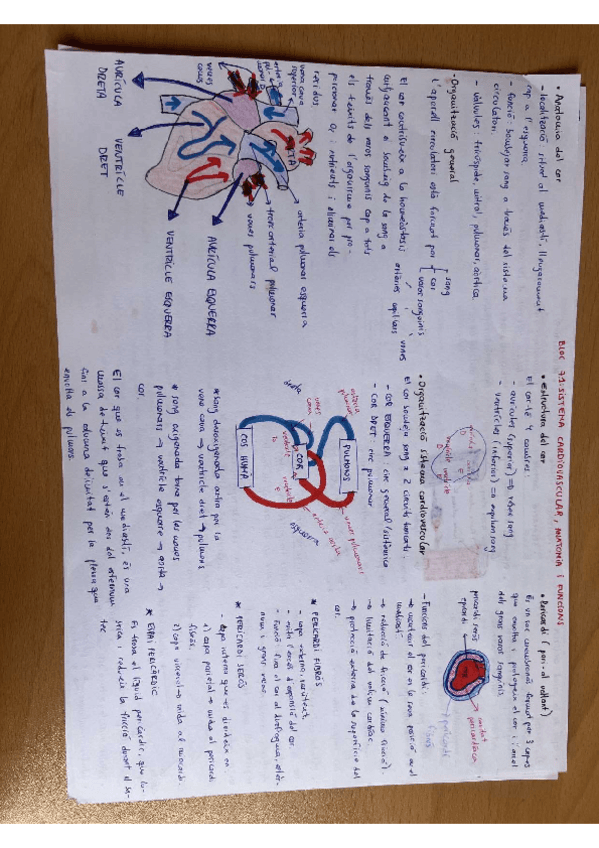 BLOC 7.1: SISTEMA CARDIOVASCULAR, ANATOMIA I FUNCIONS
• Anatomia del cor
- localització: interior al mediastí, lleugerament
cap a l'esquerra.
- funció: bombejar sang a través del sistema
circulatori.
- vàlvules: tricúspide, mitral, pulmonar, aòrtica
• Organització general
L'aparell circulatori està format per
sang
cor
vasos sanguinis
artèries capil·lars venes
El cor contribueix a la homeòstasi
mitjançant el bombeig de la sang a
través dels vasos sanguinis cap a tots
els teixits de l'organisme per pro-
porcionar O₂ i nutrients i eliminar els
residus.
vena cava
superior
AORTA
venes
caves
artèria pulmonar esquerra
tronc arterial pulmonar
venes pulmonars
AURÍCULA ESQUERRA
VENTRÍCLE ESQUERRA
VENTRÍCLE
DRET
AURÍCULA
DRETA
• Estructura del cor
El cor té 4 cambres.
- aurícules (superior) ⇒ reben sang
- ventricles (inferior) ⇒ expulsen sang
• Organització sistema cardiovascular
El cor bombeja sang a 2 circuits tancats.
- COR ESQUERRA: circ general/sistèmica
- COR DRET: circ pulmonar
PULMONS
COR
COS HUMÀ
dreta
esquerra
artèria
pulmonar
venes
cava
venes pulmonars
artèria aorta
* Sang desoxigenada entra per la
vena cava → ventricle dret → pulmons
* sang oxigenada torna per les venes
pulmonars → ventricle esquerre → aorta →
cos.
El cor que es troba en el mediastí, és una
massa de teixit que s'estén des del esternum
fins a la columna delimitat per la pleura que
envolta els pulmons.
• Pericardi (peri: al voltant)
És un sac membranós format per 3 capes
que envolta i protegeix el cor i l'arrel
dels grans vasos sanguinis.
pericardi serós
epicardi
cavitat
pericardíaca
pericardi
fibrós
- Funcions del pericardi:
→ mantenir el cor en la seva posició en el
mediastí
→ reducció de fricció (mínima fricció)
→ limitació del volum cardíac
→ protecció externa de la superfície del
cor.
* PERICARDI FIBRÓS
- capa externa, resistent.
- evita l'excés d'expansió del cor.
- Funció: fixa el cor al diafragma, estèr-
num i grans vasos.
* PERICARDI SERÓS
- capa interna que es divideix en
1) capa parietal → unida al pericardi
fibrós.
2) capa visceral → unida al miocardi.
* ESPAI PERICÀRDIC
Es troba el líquid pericàrdic, que lu-
brica i redueix la fricció durant el